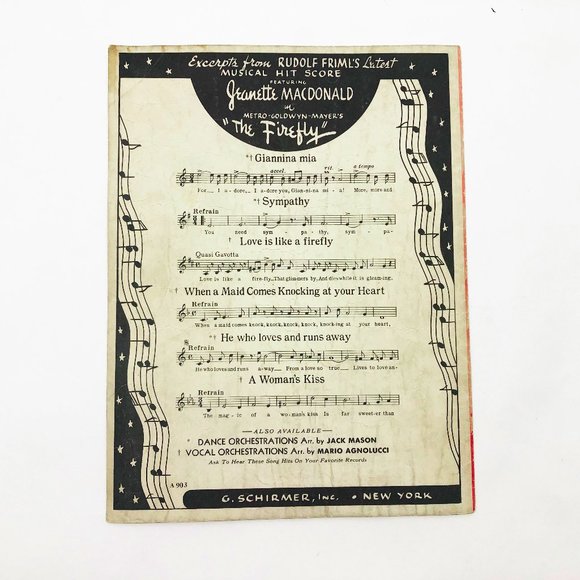 Excerpts from RUDOLF FRIML'S Latest
MUSICAL HIT SCORE
FEATURING
Jeanette MACDONALD
in
METRO-GOLDWYN-MAYER'S
"The Firefly"
*† Giannina mia
accel. rit. a tempo
For I a-dore, I a-dore you, Gian-ni-na mi-a! More, more and
*† Sympathy
Refrain
You need sym-pa-thy, sym-pa-
† Love is like a firefly
Quasi Gavotta
Love is like a fire-fly, That glimmers by, And dies while it is gleam-ing,
† When a Maid Comes Knocking at your Heart
Refrain
When a maid comes knock, knock, knock, knock, knock-ing at your heart,
*† He who loves and runs away
Refrain
He who loves and runs a-way From a love so true Lives to love an-
† A Woman's Kiss
Refrain
The mag-ic of a wo-man's kiss Is far sweet-er than
—ALSO AVAILABLE—
* DANCE ORCHESTRATIONS Arr. by JACK MASON
† VOCAL ORCHESTRATIONS Arr. by MARIO AGNOLUCCI
Ask To Hear These Song Hits On Your Favorite Records
A 903
G. SCHIRMER, INC. • NEW YORK